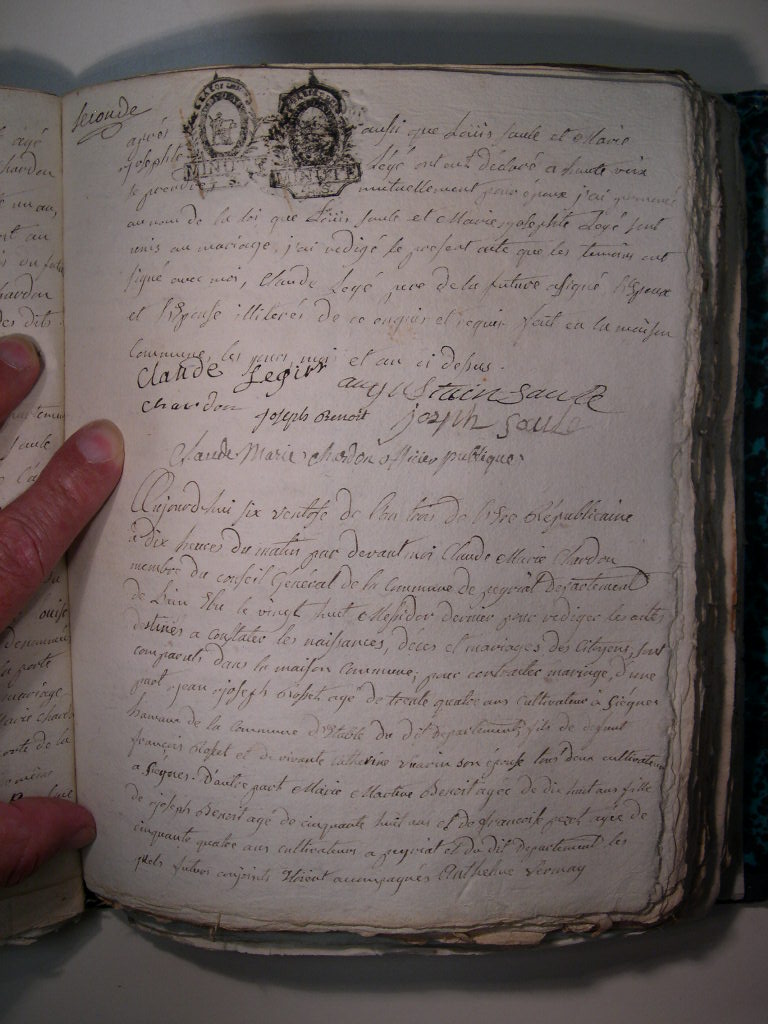 seconde
après aussi que Loüis saule et Marie
josephte Legé ont eut déclaré a haute voix
se prendre mutuellement pour époux j'ai prononcé
MINUTE MINUTE
au nom de la loi que Loüis saule et Marie josephte Legé sont
unis au mariage, j'ai redigé le present acte que les temoins ont
signé avec moi, Claude Legé pere de la future asigné l'Epoux
et l'Epouse illiterés de ce enquis et requis fait en la maison
Commune, les jours, mois et an ci depus.
Claude Leger augustain saule
chardon joseph Benoit joseph saule
Claude Marie chardon officier publique
Aujourd'hui six ventose de l'an trois de l'Ere Républicaine
a dix heures du matin par devant moi Claude Marie Chardon
membre du conseil General de la Commune de peyriat Departement
de Lain Elu le vingt huit Messidor dernier pour rediger les actes
destinés a constater les naissances, décés et mariages des Citoyens, sont
comparents dans la maison Commune, pour contracter mariage, d'une
part jean joseph age de trente quatre ans Cultivateur à
hameau de la Commune d' du dit Departement, fils de defunt
françois et de vivante Catherine son épouse tous deux cultivateurs
a D'autre part Marie Martine Benoit agée de dix huit ans fille
de joseph Benoit agé de cinquante huit ans et de françoise agée de
cinquante quatre ans cultivateurs a peyriat et du dit Departement les
quels futurs conjoints étoient accompagnes